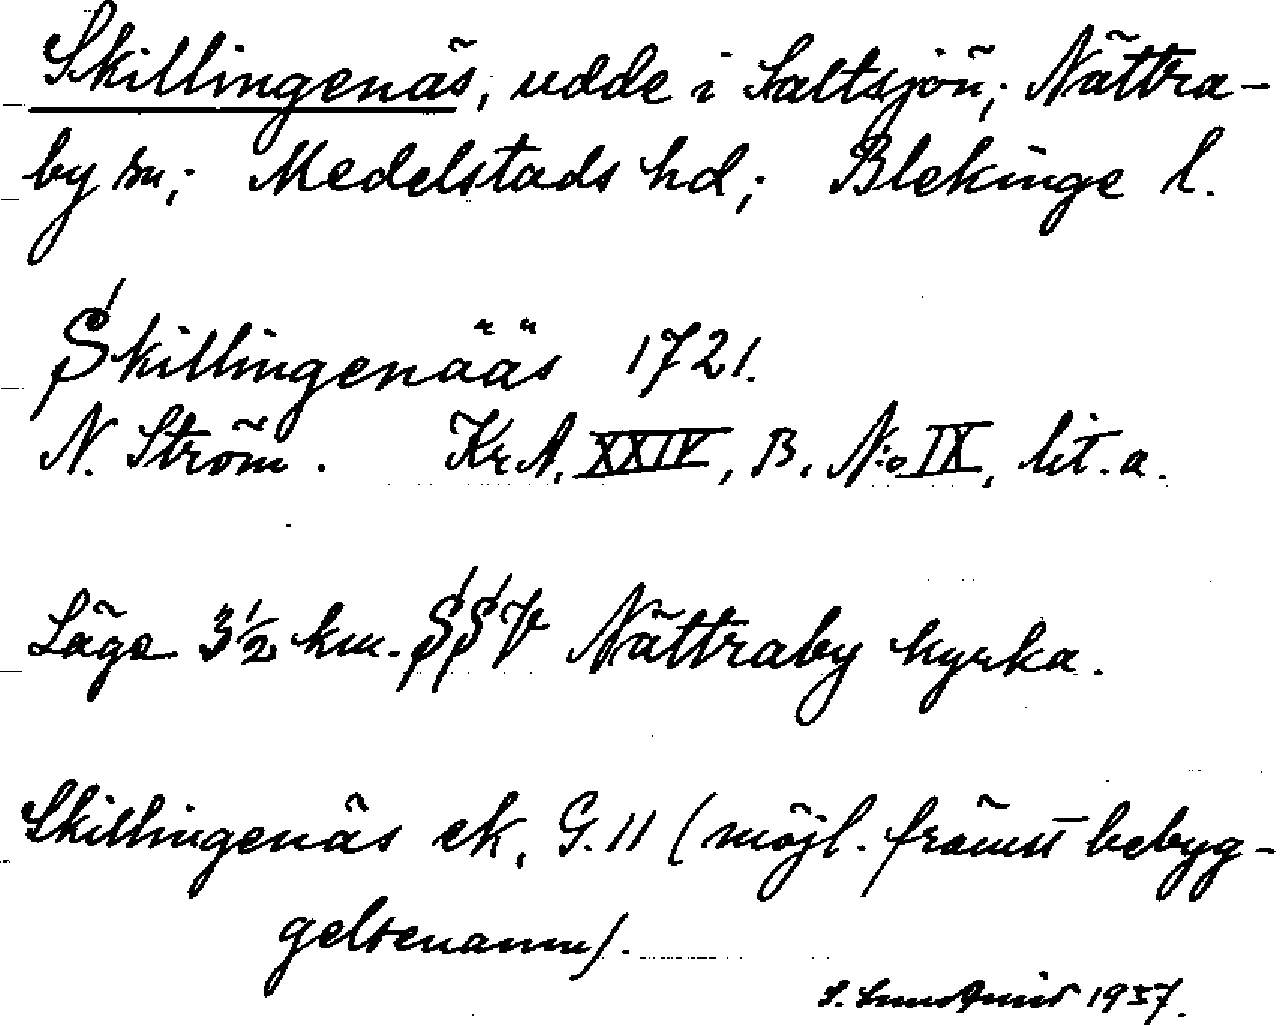 Skillingenäs, udde i Saltsjön; Nättra-
by sn; Medelstads hd; Blekinge l.
Skillingenääs 1721.
N. Ström. Kr A, XXIV, B. N:o IX, lit. a.
Läge 3 1/2 km. SSV Nättraby kyrka.
Skillingenäs ek, G. 11 (möjl. främst bebyg-
gelsenamn).
S. Lundqvist 1937.